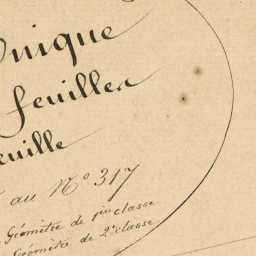 Unique
feuilles
euille
au N° 317
Géomètre de 1ère classe
Géomètre de 2e classe